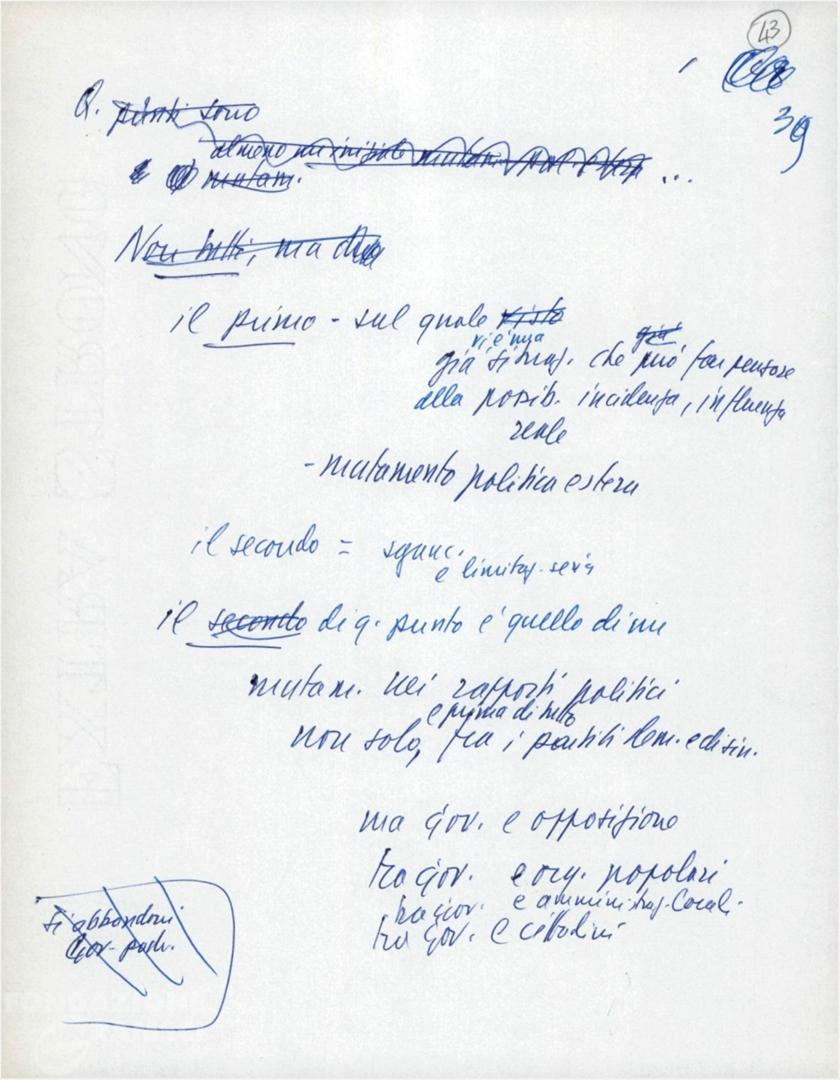 43
39
Q. punti sono
almeno
mutam. ...
Non tutti, ma
il primo - sul quale visto
v'è una già
già si che può far pensare
alla possib. incidenza, influenza
reale
- mutamento politica estera
il secondo = sganc.
e limitaz. seria
il secondo di q. punto è quello di un
mutam. nei rapporti politici
e prima di tutto
non solo, tra i partiti dem. e di sin.
ma gov. e opposizione
tra gov. e org. popolari
tra gov. e amministraz. locali.
tra gov. e cittadini
si abbandoni
Gov.
EXTRA STRONG
FONDAZIONE